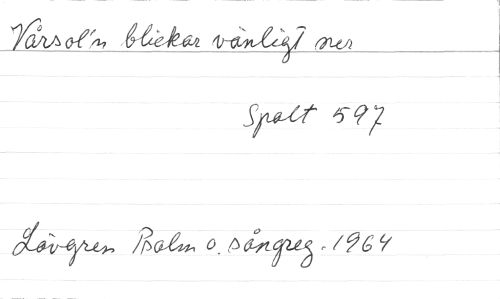 Vårsol'n blickar vänligt ner
Spalt 597
Lövgren Psalm o. sångreg. 1964